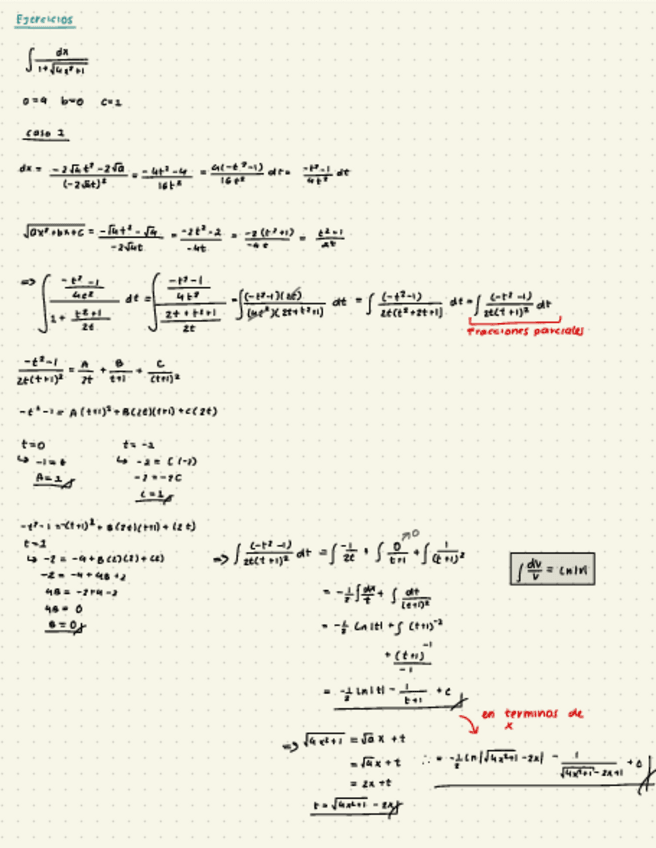 Ejercicios
∫ dx / (1+√(4x²+1))
a=4 b=0 c=1
caso 1
dx = (-2√4 t² - 2√a) / (-2√4t)² = (-4t² - 4) / 16t² = 4(-t² - 1) / 16t² dt = (-t² - 1) / 4t² dt
√(ax²+bx+c) = (-√4 t² - √4) / (-2√4t) = (-2t² - 2) / -4t = -2(t²+1) / -4t = (t²+1) / 2t
=> ∫ ((-t² - 1) / 4t²) / (1 + (t²+1) / 2t) dt = ∫ ((-t² - 1) / 4t²) / ((2t + t²+1) / 2t) = ∫ (-t²-1)(2t) / (4t²)(2t+t²+1) dt = ∫ (-t²-1) / 2t(t²+2t+1) dt = ∫ (-t²-1) / 2t(t+1)² dt
fracciones parciales
(-t² - 1) / 2t(t+1)² = A / 2t + B / (t+1) + C / (t+1)²
-t² - 1 = A(t+1)² + B(2t)(t+1) + C(2t)
t=0
↳ -1=
t= -1
↳ -2 = C(-2)
-2 = -2C
C=1
t=1
4B = 0
B=0
=> ∫ (-t²-1) / 2t(t+1)² dt = ∫ -1 / 2t + ∫ 0 / (t+1) + ∫ 1 / (t+1)²
↗0
∫ dv / v = Ln|v|
= -½ ∫ dx / t + ∫ dt / (t+1)²
= -½ Ln|t| + ∫ (t+1)⁻²
+ (t+1)⁻¹ / -1
= -½ Ln|t| - 1 / (t+1) + c
en terminos de x
=> √(4x²+1) = √a x + t
= √4 x + t
= 2x + t
t = √(4x²+1) - 2x
∴ = -½ Ln|√(4x²+1) - 2x| - 1 / (√(4x²+1) - 2x+1) + c